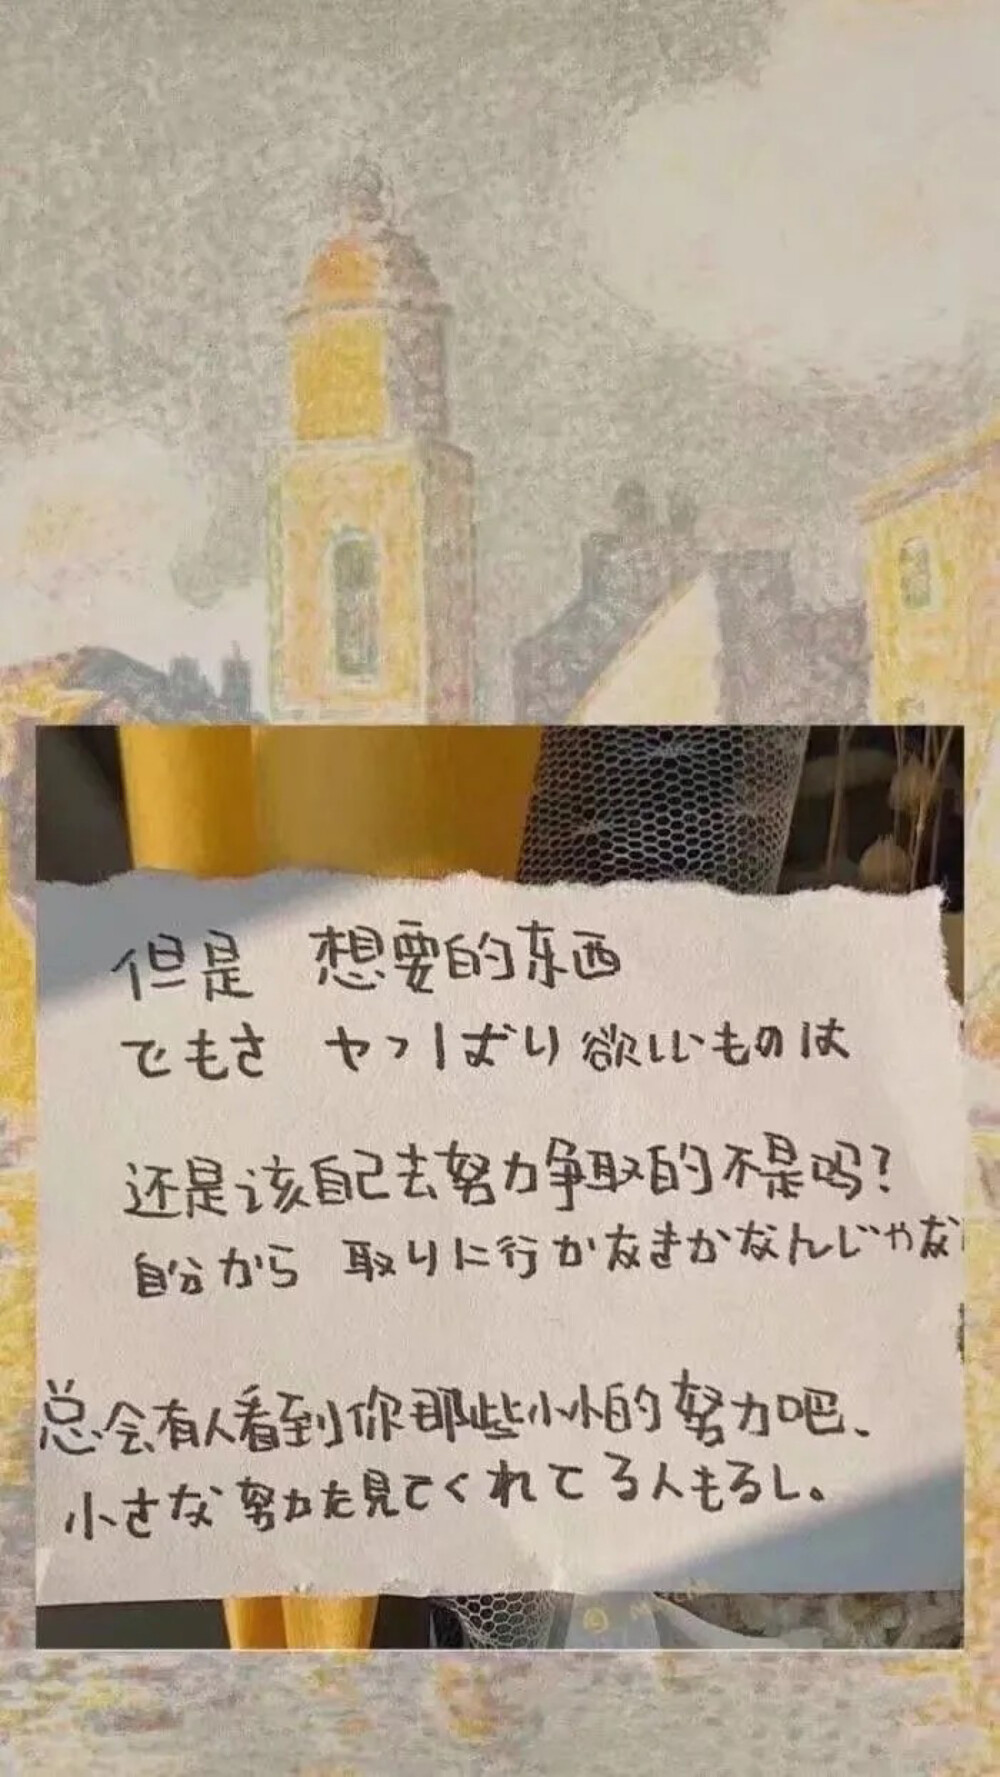 但是 想要的东西
でもさ ヤっぱり欲しいものは
还是该自己去努力争取的不是吗?
自分から 取りに行かなきかなんじゃな
总会有人看到你那些小小的努力吧、
小さな努力を見てくれてる人もるし。